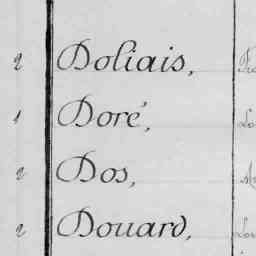 2 Doliais,
1 Doré,
2 Dos,
2 Douard,